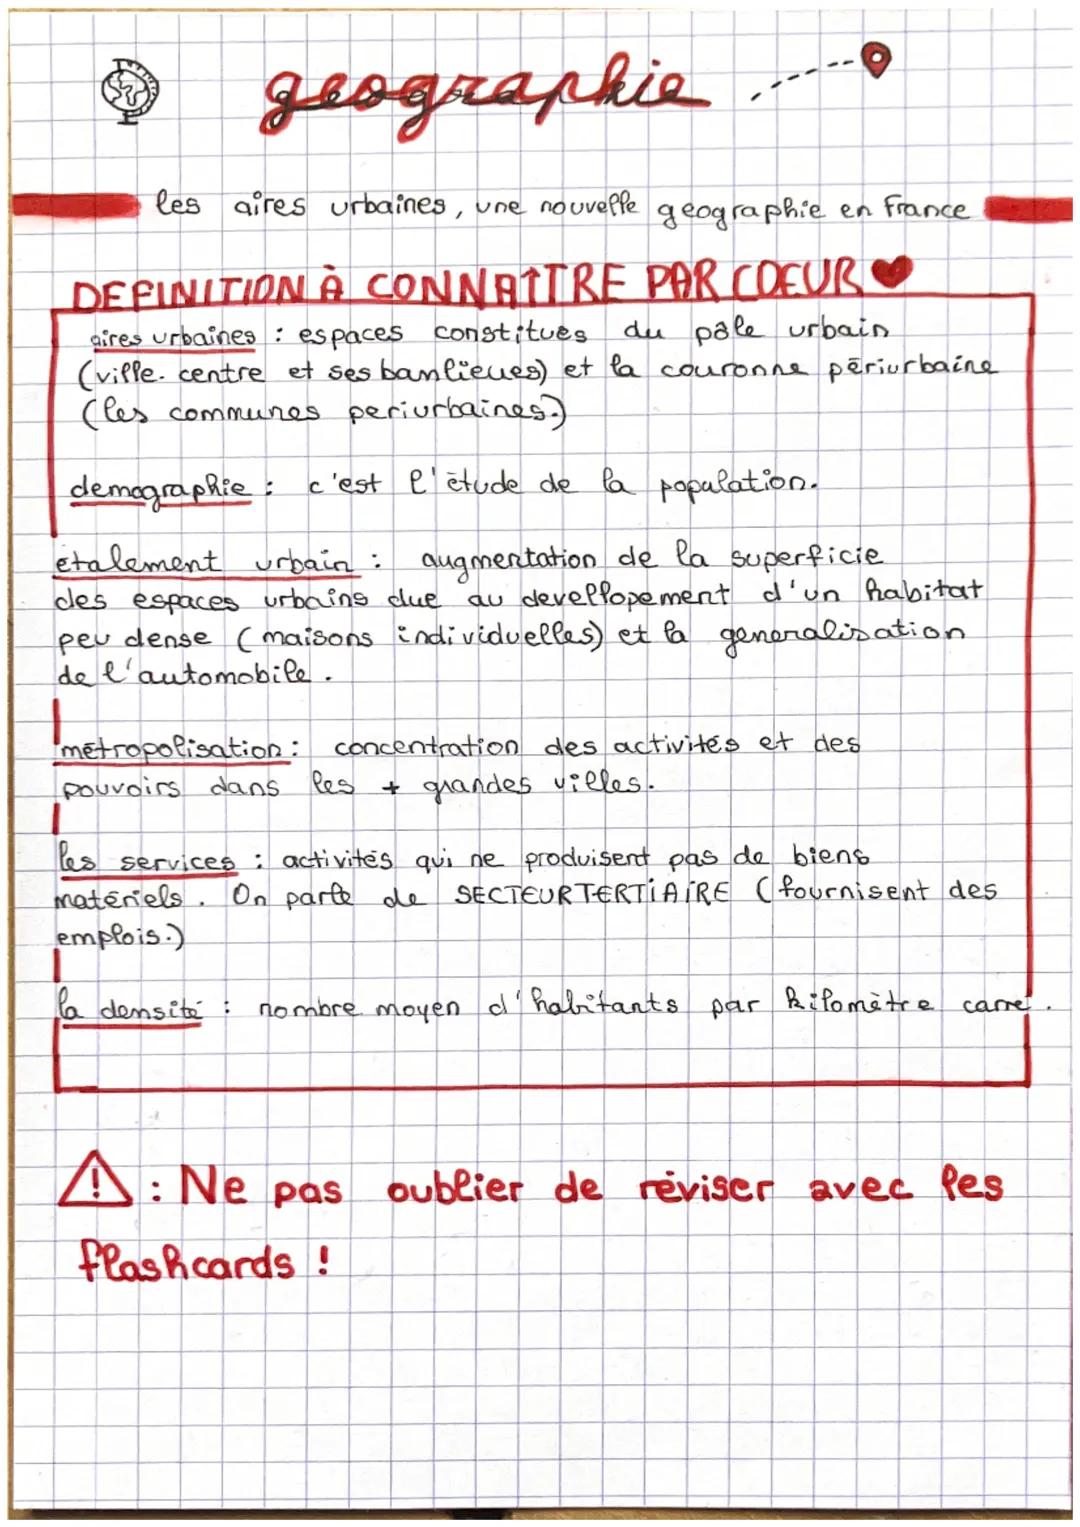 geographie
les aires urbaines, une nouvelle geographie en France
DEFINITION À CONNAÎTRE PAR COEUR
aires urbaines : espaces constitues du pôle urbain
(ville-centre et ses banlieues) et la couronne périurbaine
(les communes periurbaines.)
demographie : c'est l'étude de la population.
étalement urbain : augmentation de la superficie
des espaces urbains due au devellopement d'un habitat
peu dense (maisons individuelles) et la generalisation
de l'automobile.
métropolisation : concentration des activités et des
pouvoirs dans les + grandes villes.
les services : activités qui ne produisent pas de biens
matériels. On parle de SECTEUR TERTIAIRE (fournisent des
emplois.)
la densité : nombre moyen d'habitants par kilomètre carré.
! : Ne pas oublier de réviser avec les
flashcards !